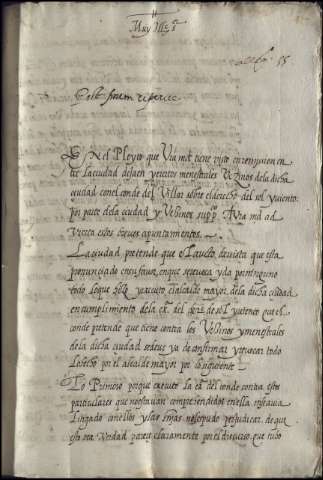 Muy Ill.e S.r
En el Pleyto que V.ra m.d tiene visto en revision en
tre la ciudad de Jaen y ciertos menestrales Vezinos de la dicha
ciudad con el conde del Villar sobre el derecho del sol y viento
por parte de la ciudad y Vezinos sup.ca A v.ra m.d ad
vierta estos breves apuntamientos.
La ciudad pretende que el auto de vista que esta
pronunciado en su favor, en que se revoca y da por ninguno
todo lo que hizo y executo el alcalde mayor de la dicha ciudad
en cumplimiento de la ex.a del derecho de sol y viento que el
conde pretende que tiene contra los Vezinos y menestrales
de la dicha ciudad se deve y a de confirmar y revocar todo
lo hecho por el alcalde mayor por lo siguiente
Lo Primero porque executo la ex.a del conde contra estos
particulares que no estavan comprendidos en ella ni se avia
Litigado con ellos y las sn.as no les pudo perjudicar. de que
esto sea verdad parece claramente por el discurso que hubo